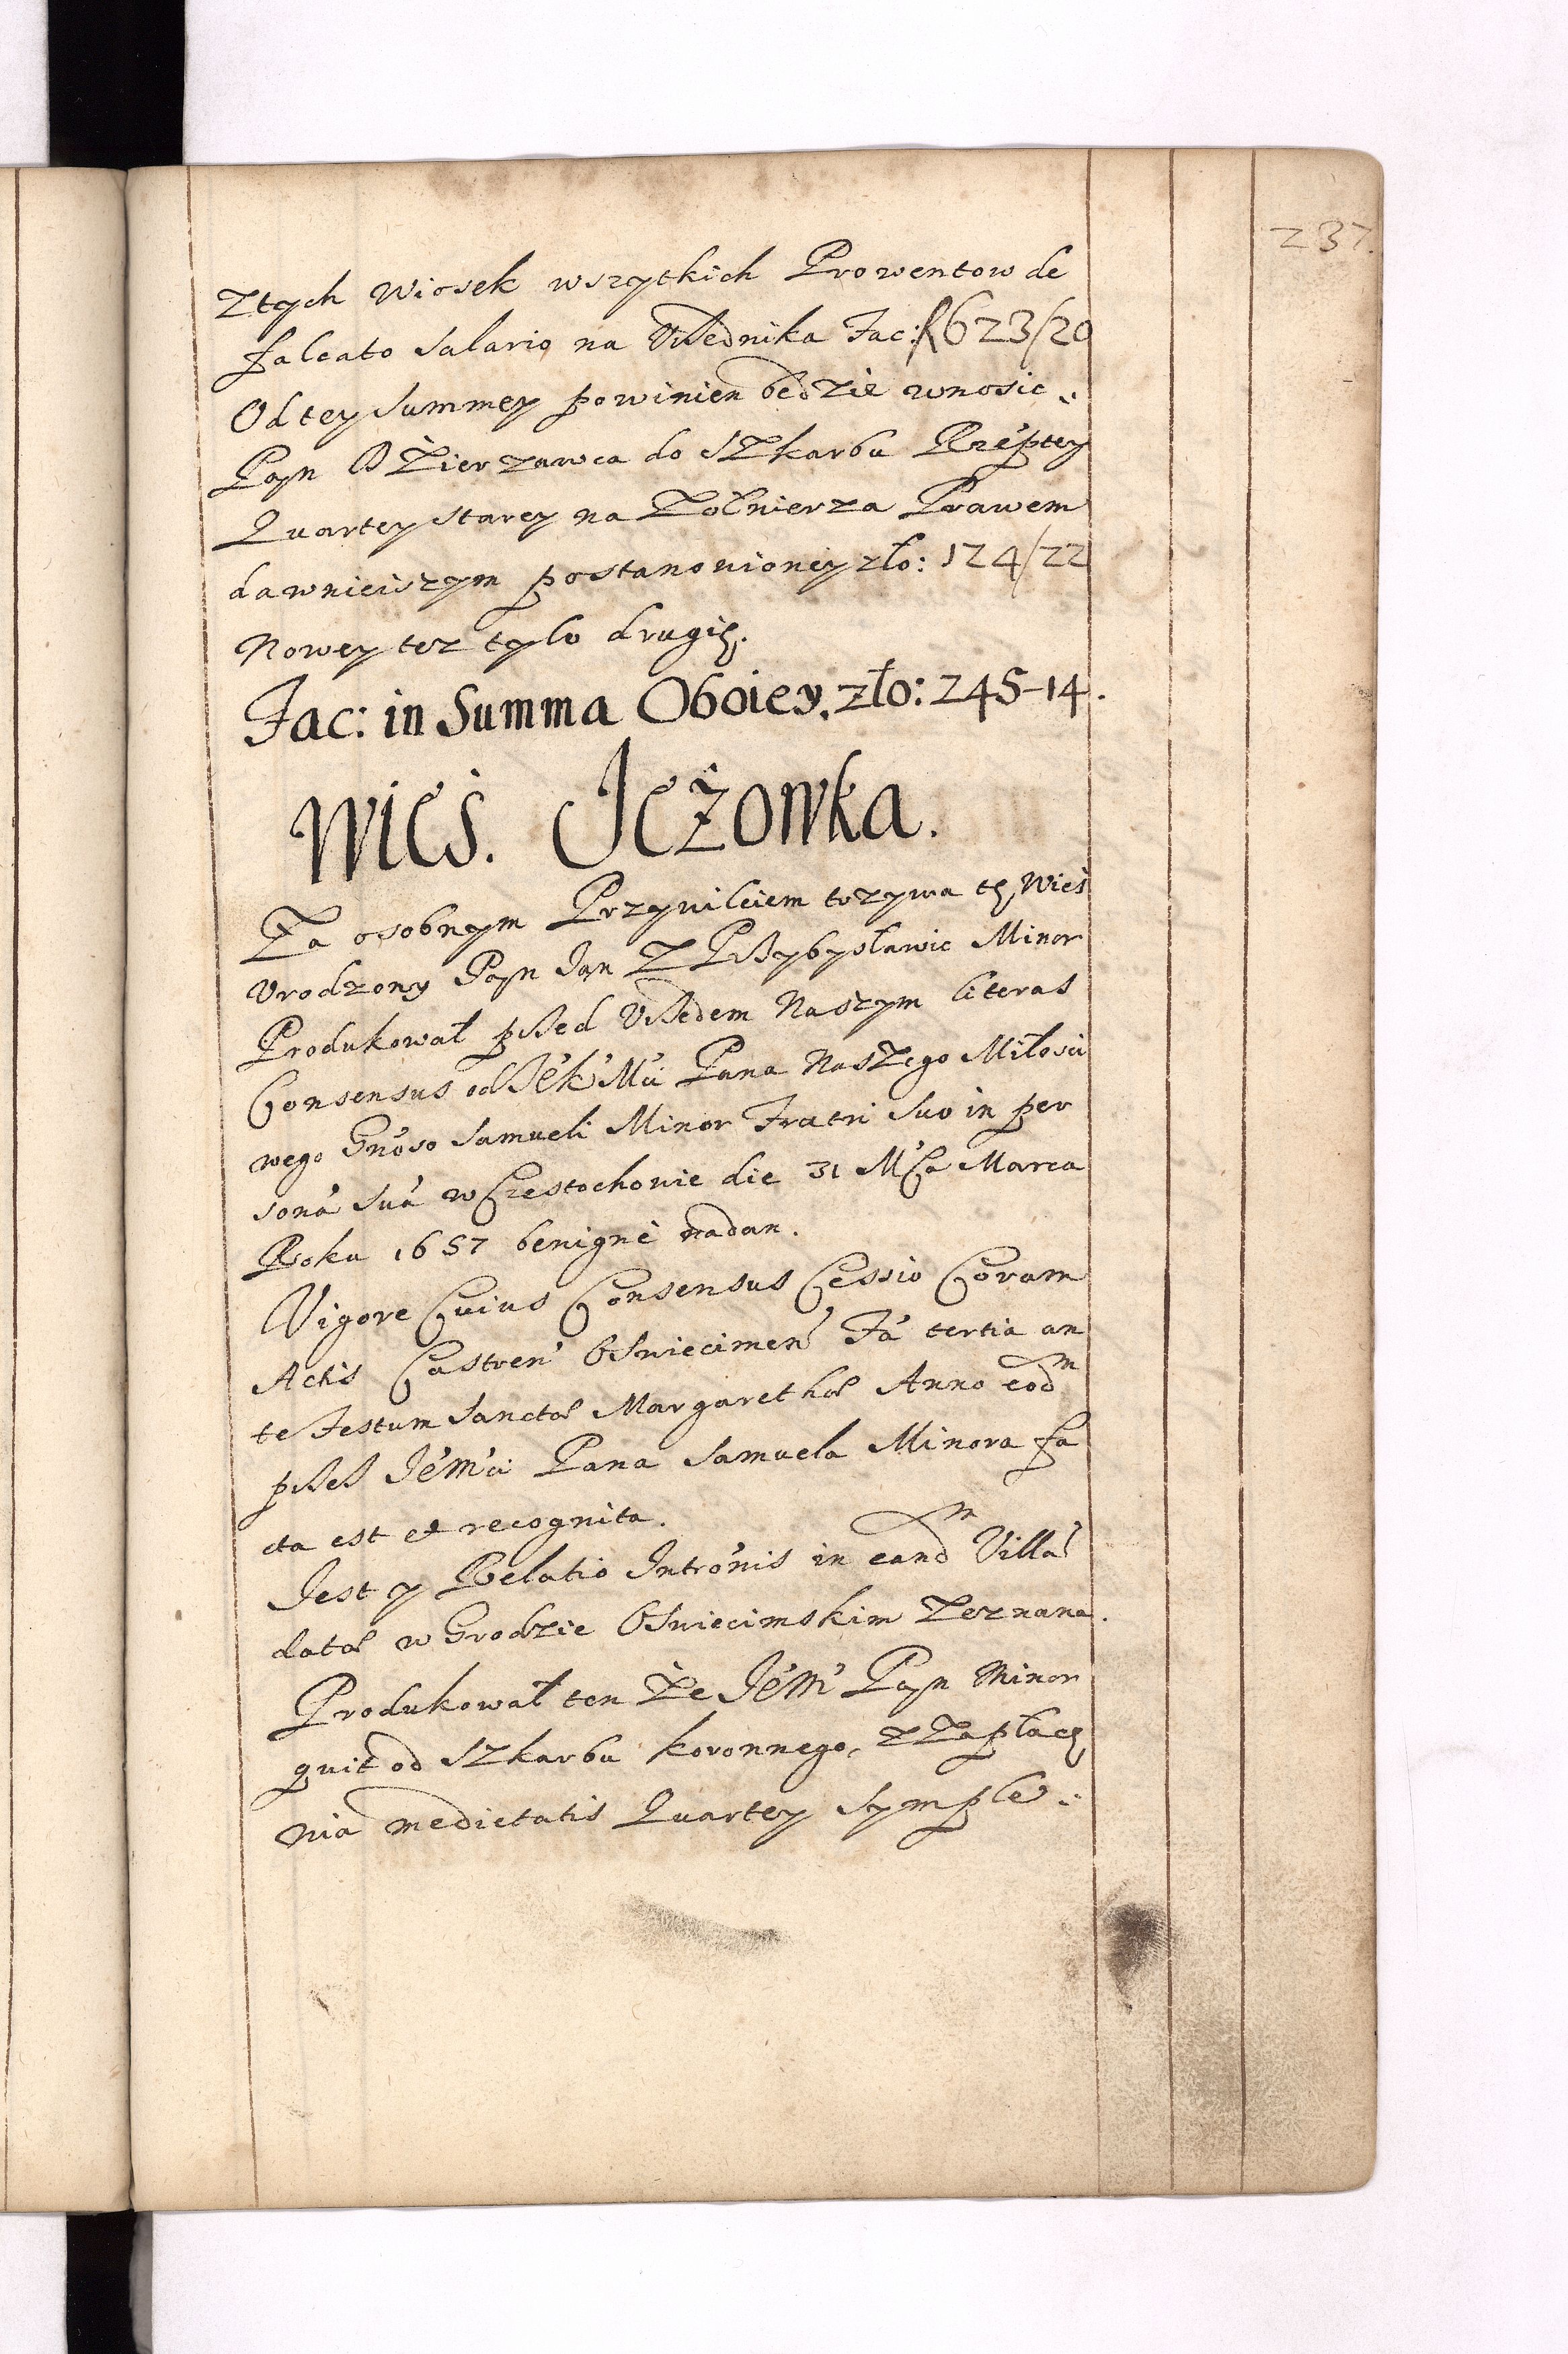 237.
Ztych Wiosek wszytkich Prowentow de
falcato Salario na Vrzednika Fac: f 623/20
Od tey Summey powinien będzie wnosic
Pan Dzierzawca do Szkarbu Rzeptey
Quartey starey na Zołnierza Prawem
dawnieiszym postanowioney zło: 124/22
Nowey tez tylo drugie.
Fac: in Summa Oboiey. zło: 245-14.
Wieś. Jeżowka.
Za osobnym Przywileiem trzyma tę Wieś
Vrodzony Pan Jan Z Przybysławic Minor
Produkował przed Vrzedem Naszym literas
Consensus od JéK Mći Pana Naszego Miłosci
wego Gnóso Samueli Minor Fratri Suo in per
soná Suá w Częstochowie die 31 Mća Marca
Roku 1657 benigné nadan.
Vigore Cuius Consensus Cessio Coram
Actis Castren Oswiecimen Fá tertia an
te Festum Sanctæ Margarethæ Anno eodm
przez Jém̓ci Pana Samuela Minora fa
cta est et recognita.
Jest y Relatio Intrónis in eandm Villá
datæ w Grodzie Oswiecimskim Zeznana.
Produkował ten Ze Jém̓ Pan Minor
quit od Szkarbu koronnego, z Zapłace
nia medietatis Quartey Symple